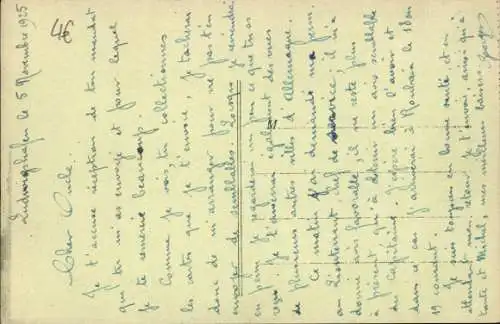 Ludwigshafen le 5 Novembre 1925
Cher Oncle.
Je t'accuse réception de ton mandat
que tu m'as envoyé et pour lequel
je te remercie beaucoup.
Comme je vois, tu collectionnes
les cartes que je t'envoie, je tacherai
donc de m'arranger pour ne pas t'en
envoyer de semblables. Lorsque je reviendrai
en perm je regarderai un peu ce que tu as
reçu. Je t'enverrai également des vues
de plusieurs autres villes d'Allemagne.
Ce matin j'ai demandé ma perm.
au Lieutenant chef de service; il m'a
donné avis favorable; il ne reste plus
à présent qu'à obtenir un avis semblable
du Capitaine. J'espère bien l'avoir et
dans ce cas j'arriverai à Roubaix le 18 ou
19 courant.
Je suis toujours en bonne santé et en
attendant mon retour je t'envoi, ainsi qu'à
tante et Michel, mes meilleurs baisers. Georges